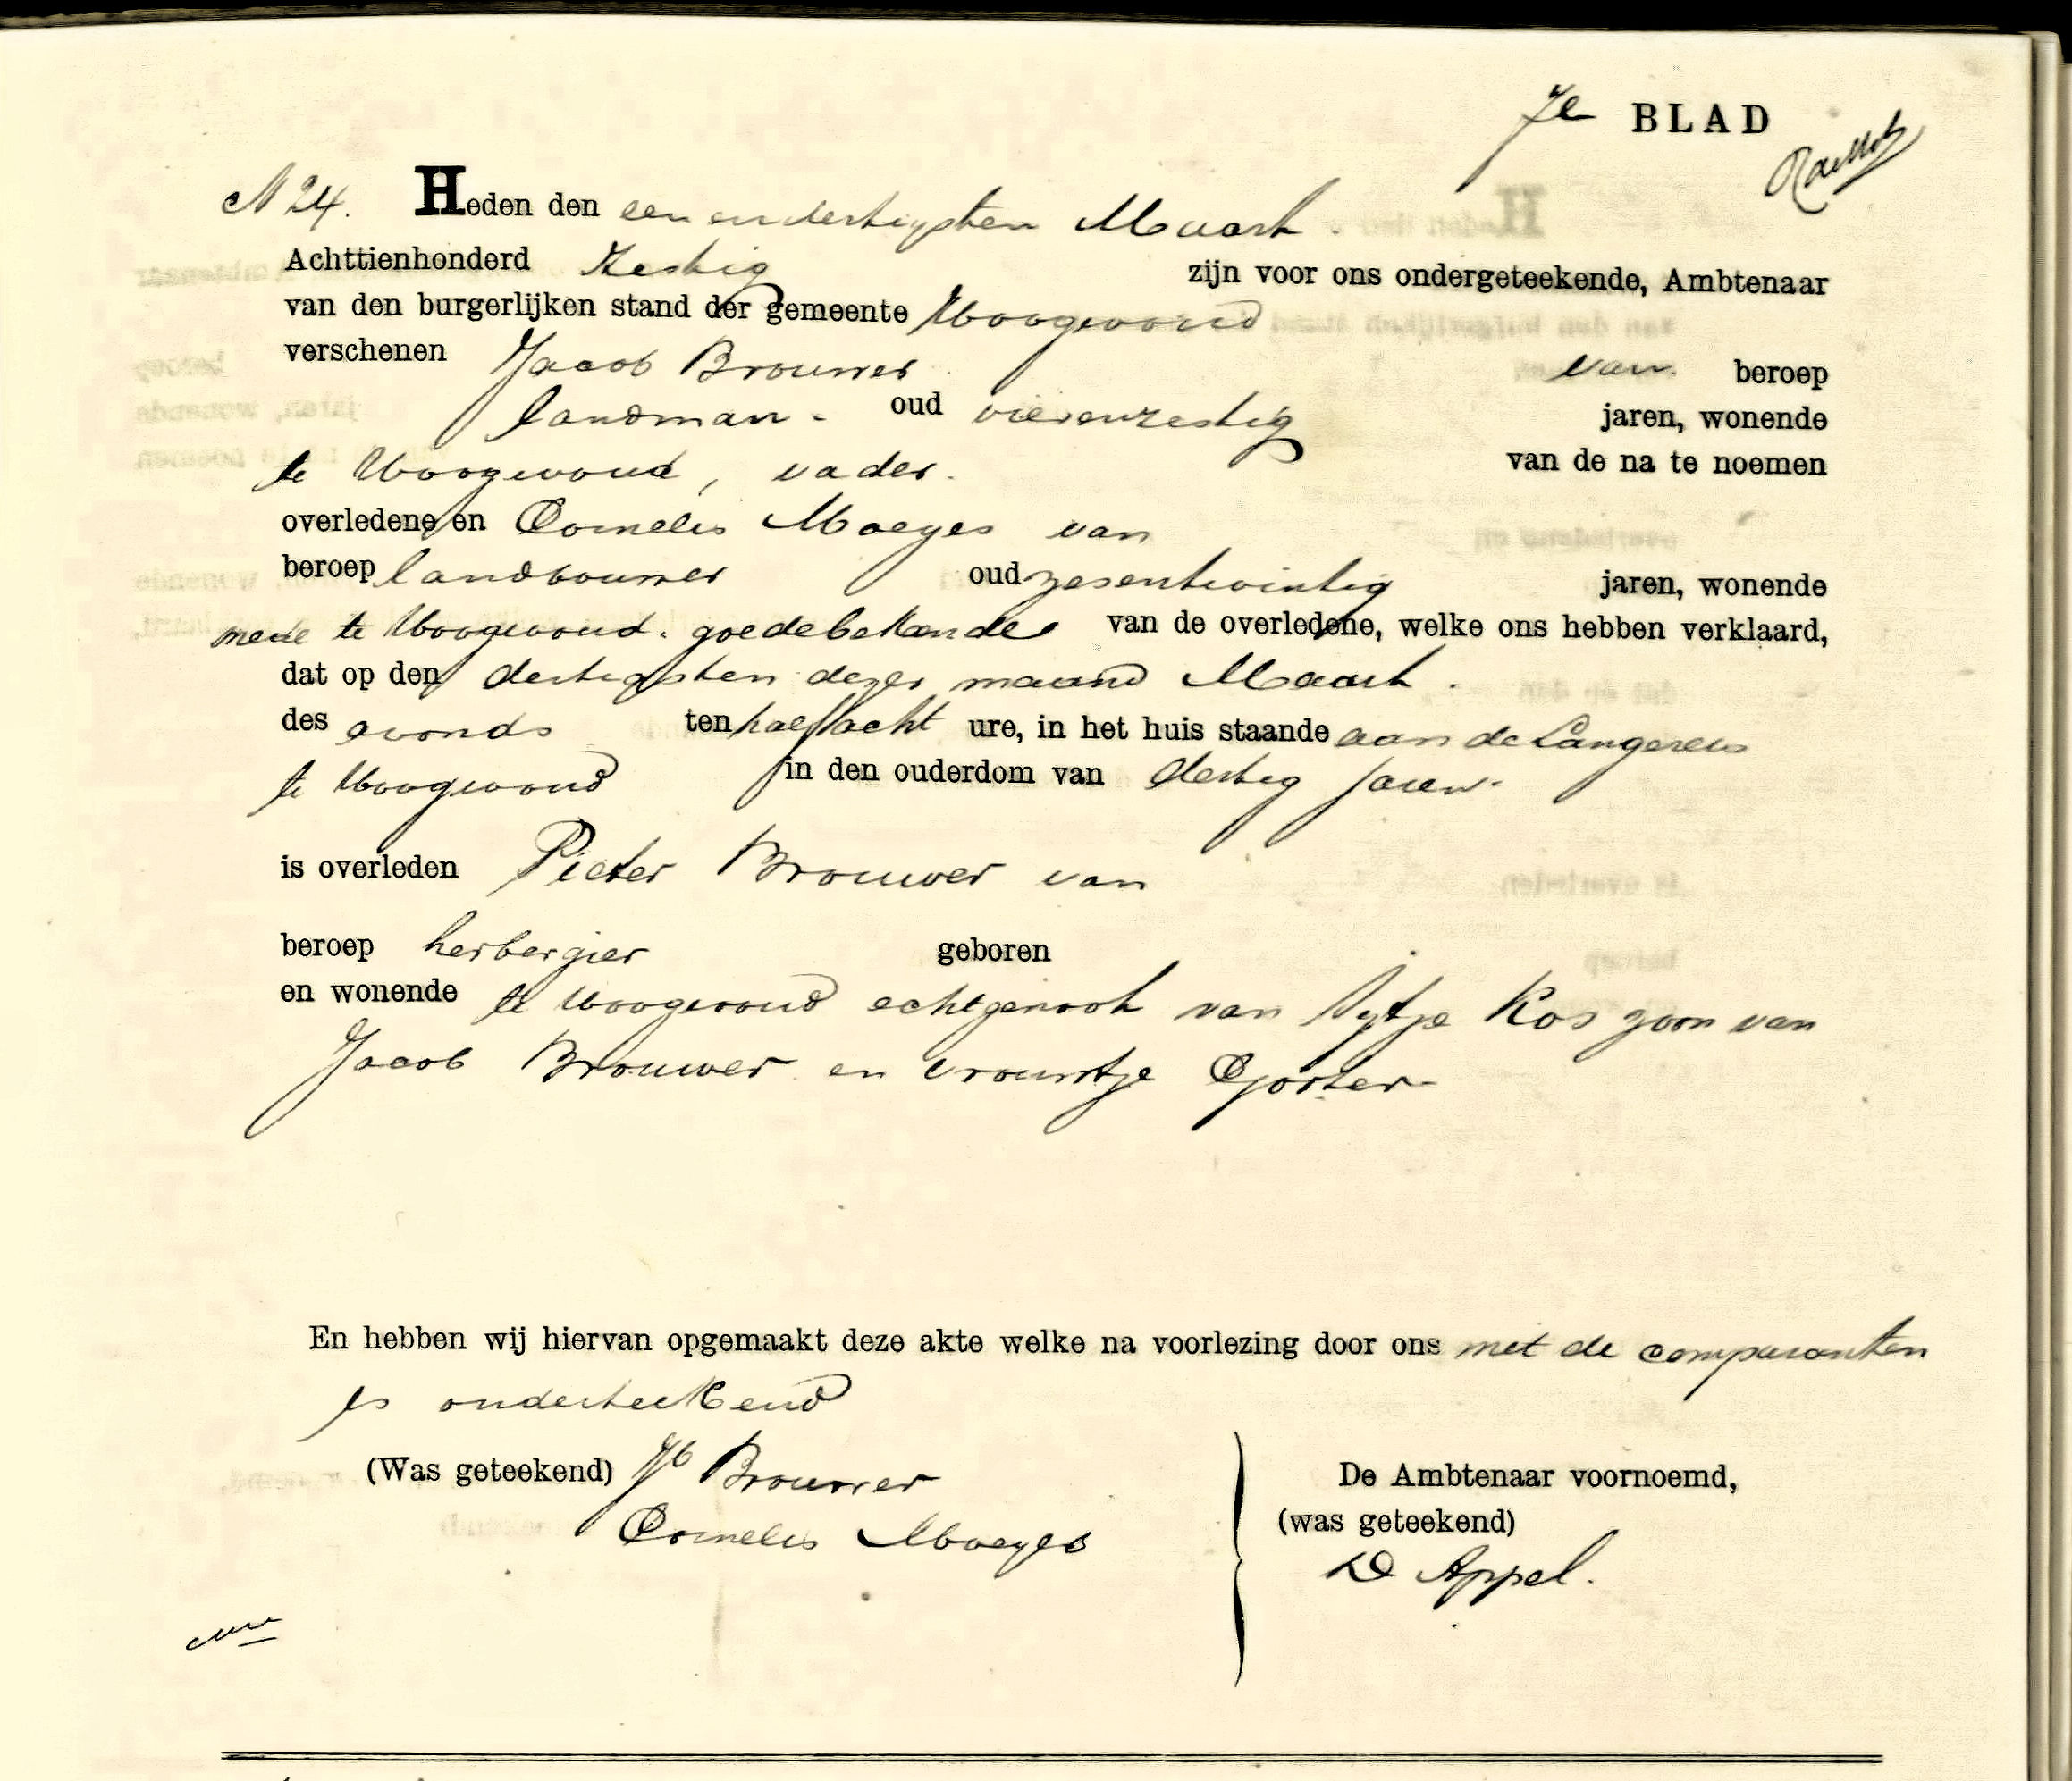 7e BLAD
N 24. Heden den een en dertigsten Maart.
Achttienhonderd Zestig zijn voor ons ondergeteekende, Ambtenaar
van den burgerlijken stand der gemeente Hoogwoud
verschenen Jacob Brouwer van beroep
landman. oud vierenzestig jaren, wonende
te Hoogwoud, vader. van de na te noemen
overledene en Cornelis Maeyes van
beroep landbouwer oud zesentwintig jaren, wonende
mede te Hoogwoud. goedebekende van de overledene, welke ons hebben verklaard,
dat op den dertigsten dezer maand Maart.
des avonds ten half acht ure, in het huis staande aan de Langereis
te Hoogwoud in den ouderdom van dertig jaren.
is overleden Pieter Brouwer van
beroep herbergier geboren
en wonende te Hoogwoud echtgenoot van Sytje Kos zoon van
Jacob Brouwer en Trouwtje Gorter
En hebben wij hiervan opgemaakt deze akte welke na voorlezing door ons met de comparanten
is onderteekend
(Was geteekend) Jb Brouwer
Cornelis Maeyes
De Ambtenaar voornoemd,
(was geteekend)
D Appel.